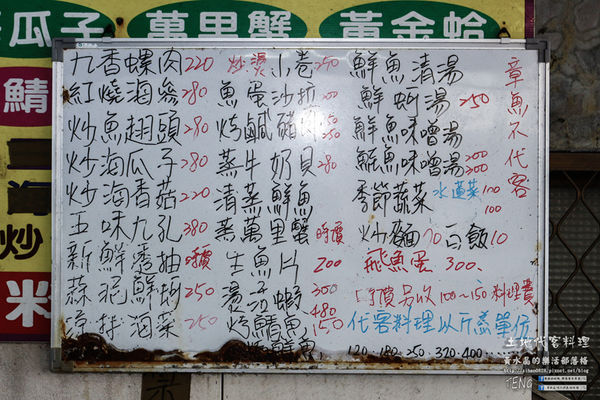 瓜子 萬里蟹 黃金蛤
鯖
炒
米
九香螺肉220
紅燒海參280
炒魚翅頭280
炒海瓜子280
炒海香菇220
五味九孔280
新鮮透抽時價
蒜泥鮮蚵250
涼拌海菜250
炒燙小卷250
魚蛋沙拉200
烤鹹豬肉
蒸牛奶貝280
清蒸鮮魚
蒸萬里蟹時價
生魚片200
烤鯖魚150
鮮魚清湯
鮮蚵湯250
鮮魚味噌湯
魭魚味噌湯200 300
季節蔬菜 水蓮菜100
100
炒麵70 白飯10
飛魚蛋300.
時價另收100~150料理費
代客料理以斤為單位
120.180.250.320.400...
章魚不代客
土地代客料理
黃水晶的樂活部落格
TENG